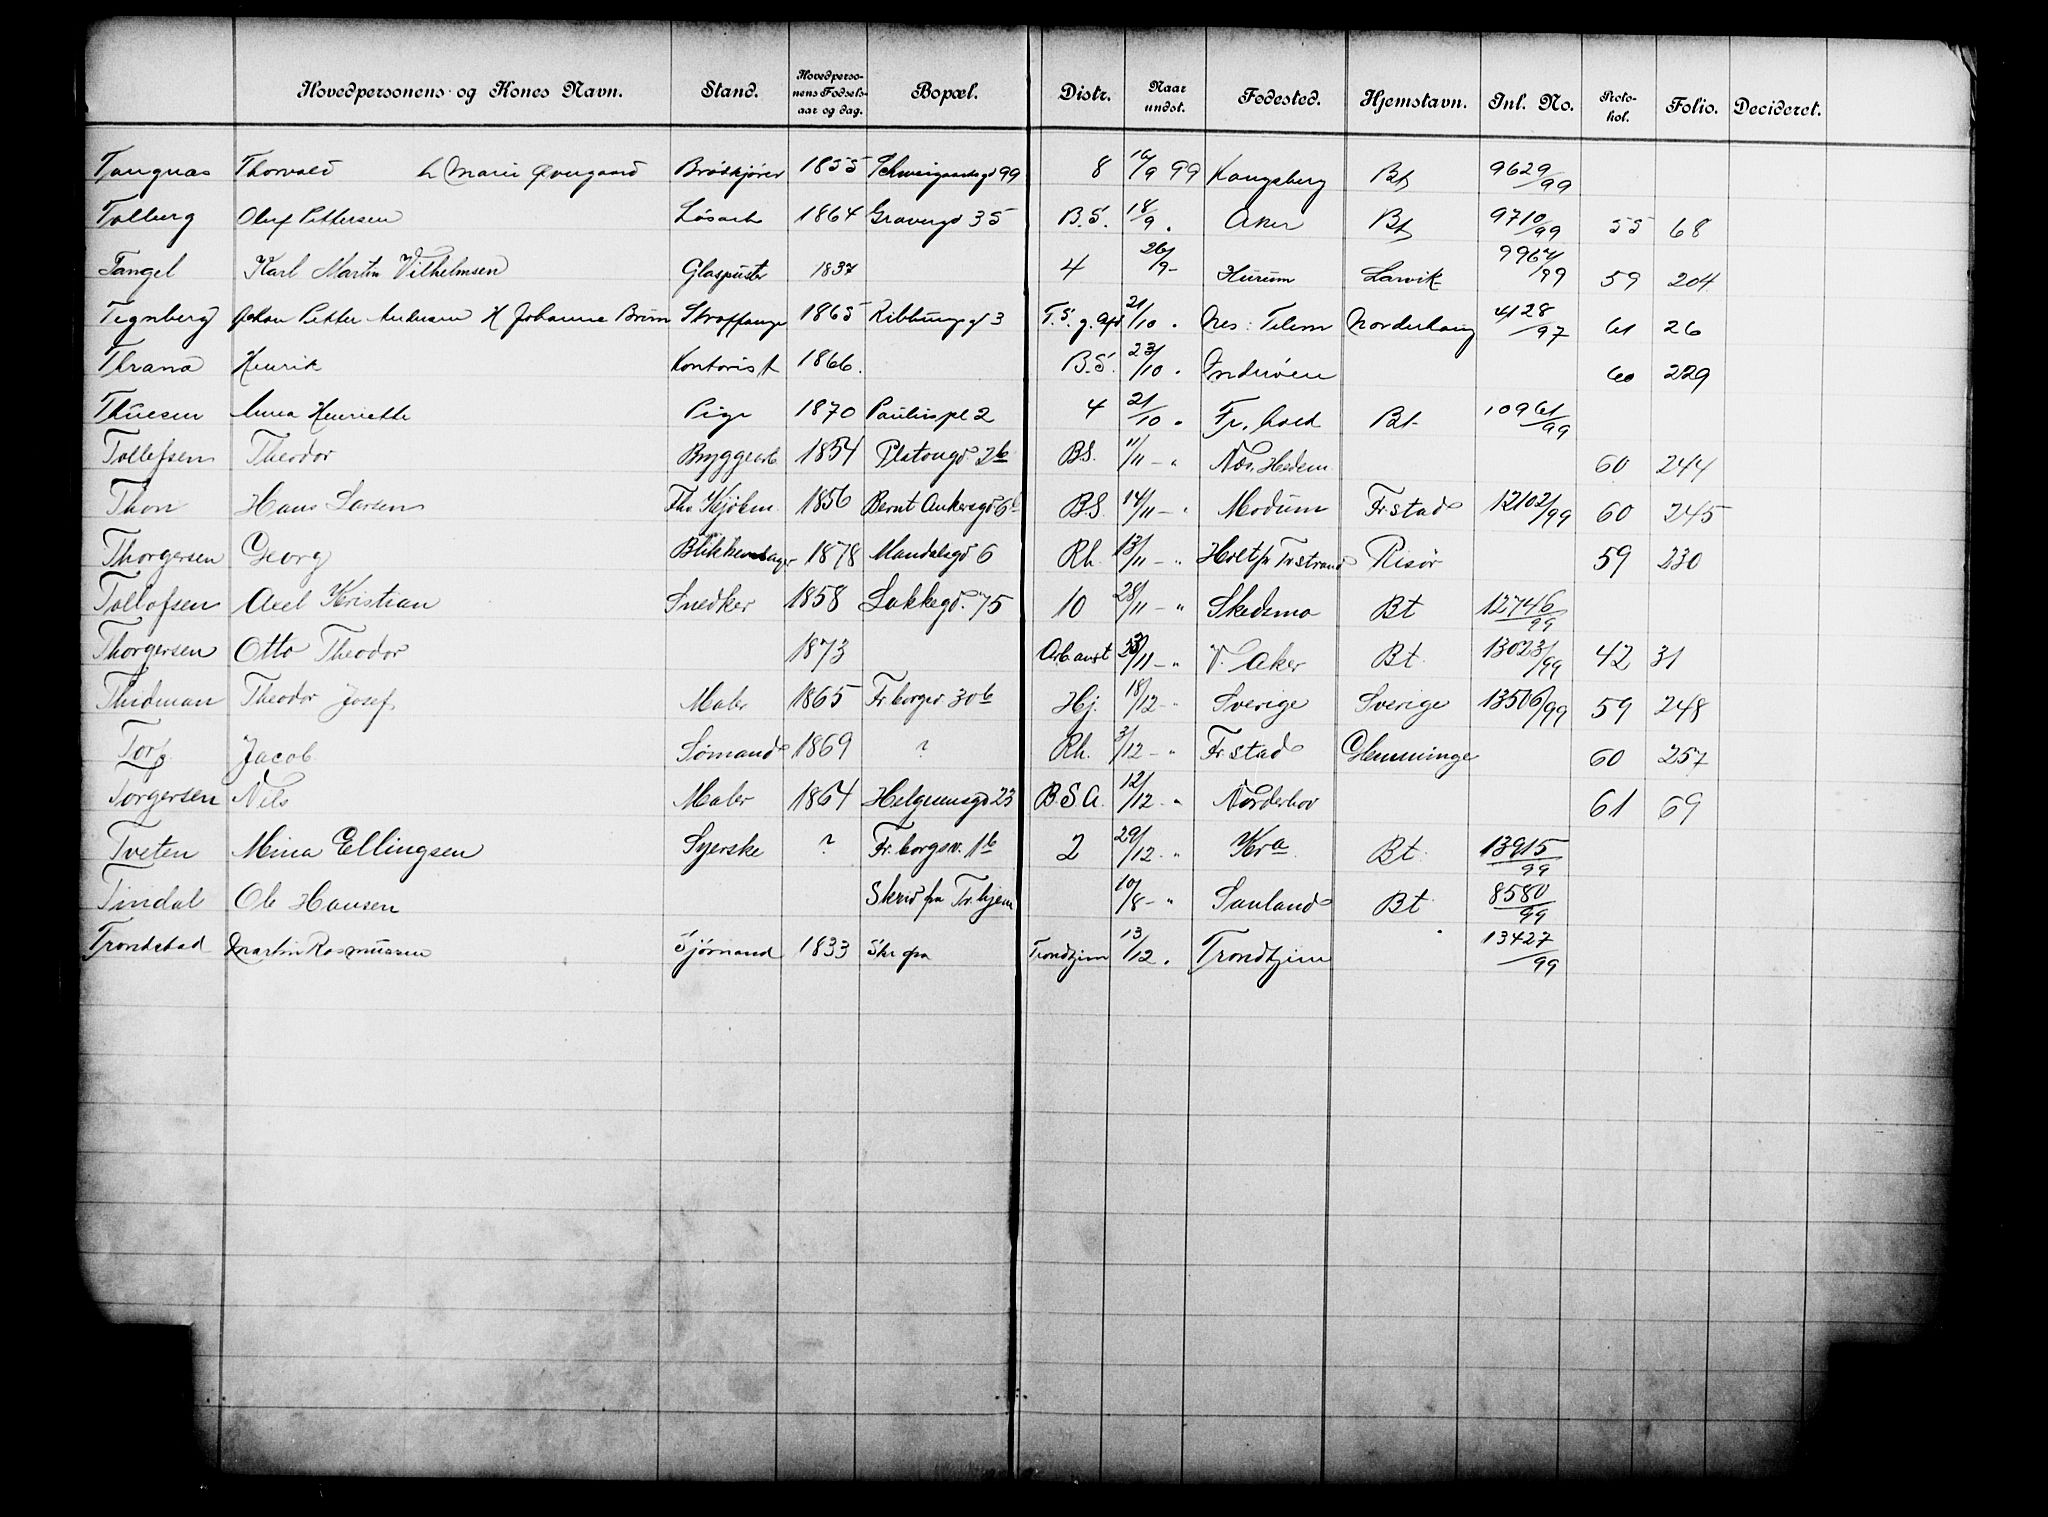 Hovedpersonens og Kones Navn. Stand. Hovedperso-nens Fødsels-aar og dag. Bopæl. Distr. Naar undst. Fødested. Hjemstavn. Inl. No. Proto-kol. Folio. Decideret.
Tangnæs Thorvald L Marie Overgaard Brødkjører 1855 Schweigaardsgd 99 8 16/9 99 Kongsberg Bt 9629/99
Tolberg Oluf Pettersen Løsarb 1864 Gravergd 35 B.S. 18/9 „ Aker Bt 9710/99 55 68
Tangel Karl Martin Vilhelmsen Glaspuster 1837 4 26/9 - Hurum Larvik 9964/99 59 204
Tegnberg Johan Petter Andersen H Johanne Brun Straffange 1865 3 T.S. g. afd 21/10 „ Nes: Telem Norderhaug 4128/97 61 26
Thrana Henrik Kontorist 1866. B.S. 23/10 „ Inderøen 60 229
Thuesen Anna Henriette Pige 1870 Paulus pl 2 4 21/10 „ Fr. hald Bt 10961/99
Tollefsen Theodor Bryggearb 1854 Platougd. 2b B.S. 11/11 - „ Næs. Hedem. 60 244
Thon Hans Larsen Fhv Kjøbm 1856 Bernt Ankersgd 6b B.S. 14/11 - „ Modum Fr stad 12102/99 60 245
Thorgersen Georg Blikkenslager 1878 Mandalsgd 6 Rh. 13/11 - „ Holt pr Tvedestrand Risør 59 230
Tollofsen Axel Kristian Snedker 1858 Lakkegd. 75 10 28/11 - „ Skedsmo Bt 12746/99
Thorgersen Otto Theodor 1873 Arb anst /11 - „ V. Aker Bt. 13023/99 42 31
Thidman Theodor Josef Maler 1865 Fr borgv. 30b Hj. 18/12 - „ Sverige Sverige 13506/99 59 248
Torp Jacob Sømand 1869 ? Rh. 3/12 - „ Fr stad Glemminge 60 257
Torgersen Nils Maler 1864 Helgesensgd 23 B.S.A. 12/12 - „ Norderhov 61 69
Tveten Mina Ellingsen Syerske ? Fr. borgsv. 1b 2 29/12 - „ Kra Bt. 13915/99
Tindal Ole Hansen Skriv fra Tr. hjem 10/8 - „ Sauland Bt 8580/99
Trondstad Martin Rasmussen Sjømand 1833 Skr fra Trondhjem 13/12 „ Trondhjem 13427/99